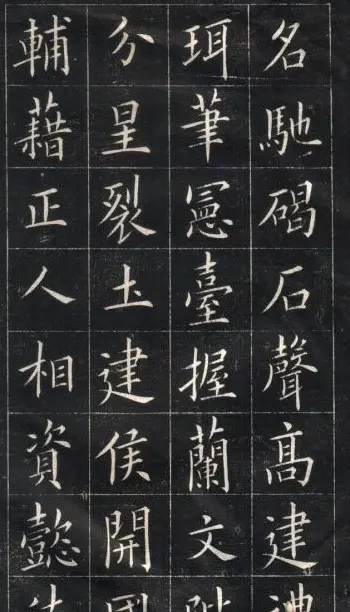 名馳碣石聲高建
珥筆憲臺握蘭文陛
分星裂土建侯開國
輔藉正人相資懿